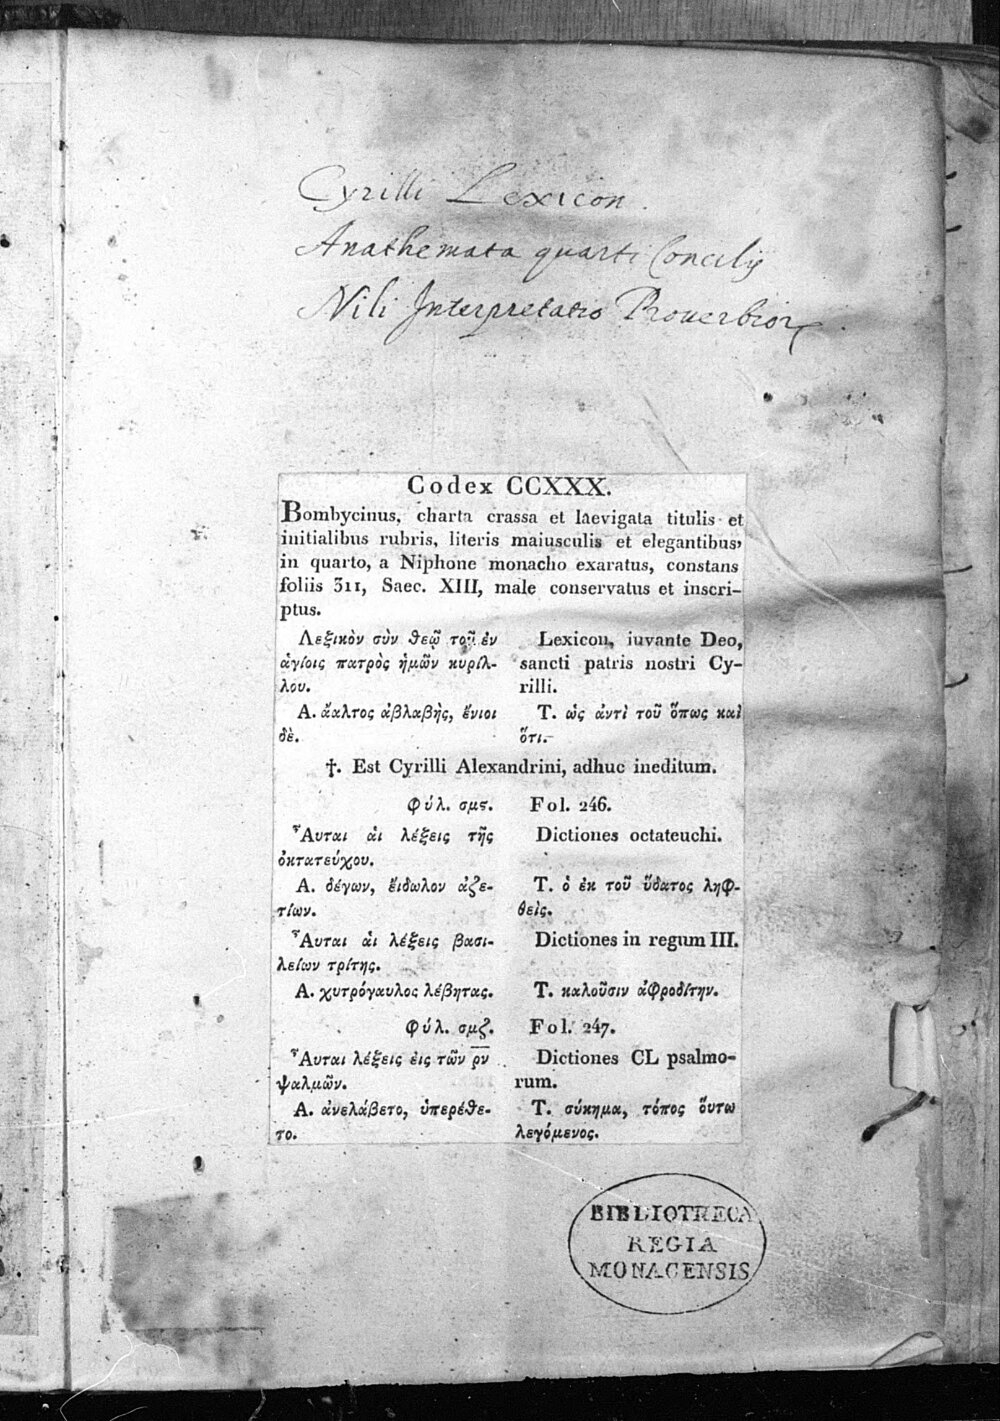 Cyrilli Lexicon.
Anathemata quarti Concilij
Nili Interpretatio Prouerbior
Codex CCXXX.
Bombycinus, charta crassa et laevigata titulis et
initialibus rubris, literis maiusculis et elegantibus,
in quarto, a Niphone monacho exaratus, constans
foliis 311, Saec. XIII, male conservatus et inscri-
ptus.
Λεξικὸν σὺν θεῷ τοῦ ἐν
ἁγίοις πατρὸς ἡμῶν κυρίλ-
λου.
Lexicon, iuvante Deo,
sancti patris nostri Cy-
rilli.
Α. ἄαλτος ἀβλαβὴς, ἔνιοι
δὲ.
Τ. ὡς ἀντὶ τοῦ ὅπως καὶ
ὅτι.
†. Est Cyrilli Alexandrini, adhuc ineditum.
Φύλ. σμϛ.
Fol. 246.
Ἁυται ἁι λέξεις τῆς
ὀκτατεύχου.
Dictiones octateuchi.
Α. δέγων, ἔιδωλον ἀζε-
τίων.
Τ. ὁ ἐκ τοῦ ὕδατος ληφ-
θεὶς.
Ἁυται ἁι λέξεις βασι-
λείων τρίτης.
Dictiones in regum III.
Α. χυτρόγαυλος λέβητας.
Τ. καλοῦσιν ἀφροδίτην.
Φύλ. σμζ.
Fol. 247.
Ἁυται λέξεις ἐις τῶν ρν
ψαλμῶν.
Dictiones CL psalmo-
rum.
Α. ἀνελάβετο, ὑπερέθε-
το.
Τ. σύκημα, τόπος ὅυτω
λεγόμενος.
BIBLIOTHECA
REGIA
MONACENSIS